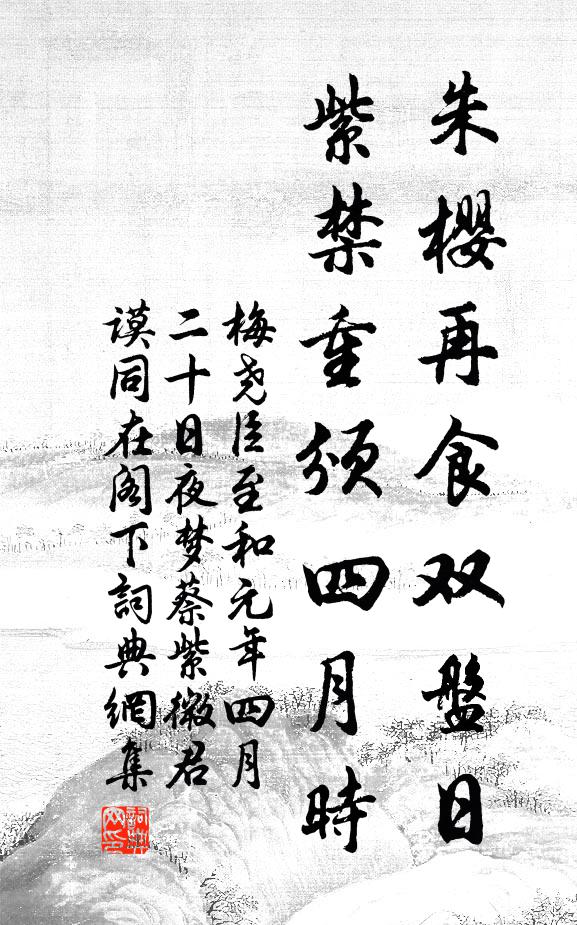 朱櫻再食双盤日
紫禁重頒四月時
梅尧臣至和元年四月
二十日夜梦蔡紫微君
谟同在阁下詞典網集